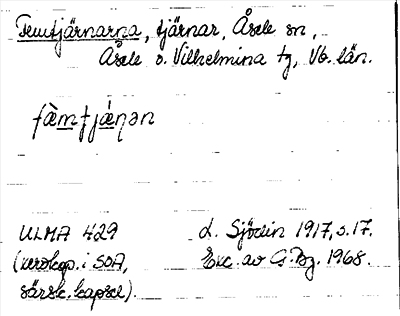 Femtjärnarna, tjärnar, Åsele sn,
Åsele o. Vilhelmina tg, Vb. län.
fæ̀mtjǽṇən
ULMA 429
(xerokop. i SOA,
särsk. kapsel).
L. Sjödin 1917, s. 17.
Exc. av G. Bg. 1968.